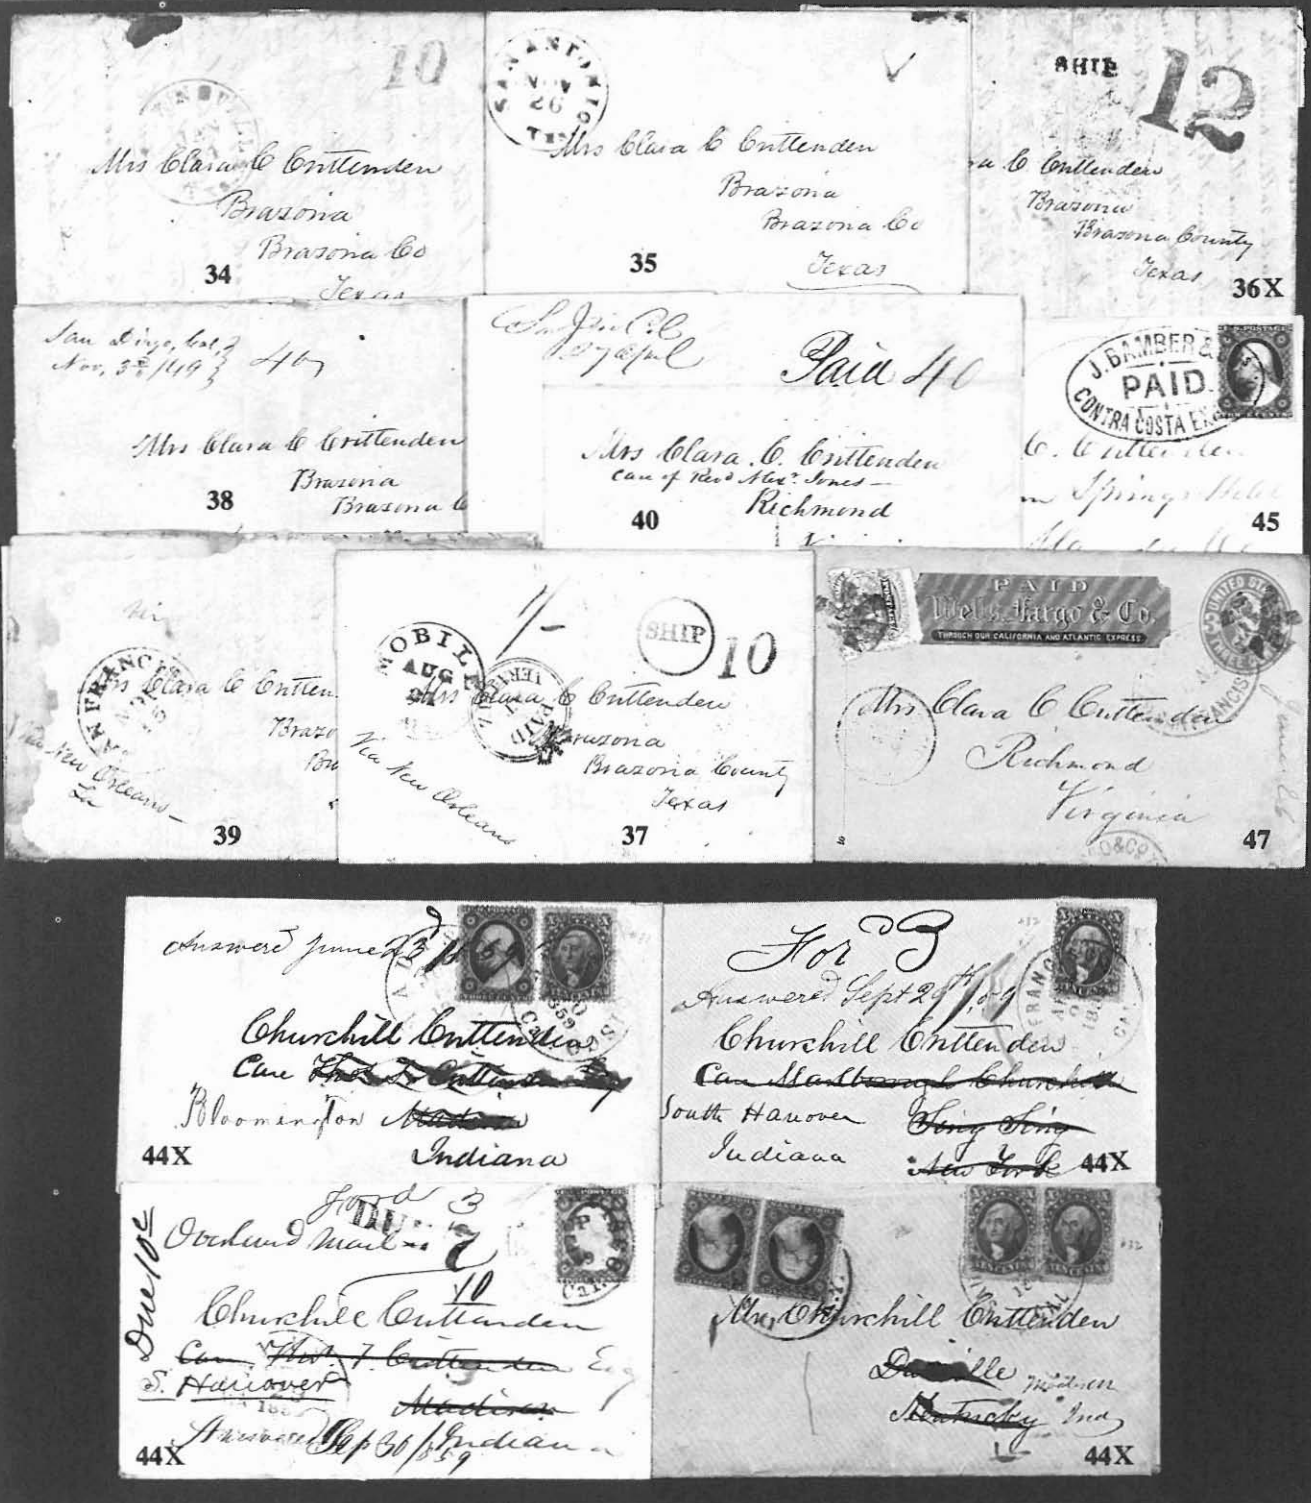 10
Mrs Clara C Crittenden
Brazoria
Brazoria Co
Texas
34
SAN ANTONIO
NOV
26
TEX
Mrs Clara C Crittenden
Brazoria
Brazoria Co
Texas
35
SHIP
12
C Crittenden
Brazoria
Brazoria County
Texas
36X
San Diego, Cal,
Nov, 3d /49
40
Mrs Clara C Crittenden
Brazoria
Brazoria C
38
Paid 40
Mrs Clara. C. Crittenden
Care of Revd Alexr Jones
Richmond
40
U.S. POSTAGE
J. BAMBER &
PAID.
CONTRA COSTA EX
C. Crittenden
Springs
45
SAN FRANCIS
Clara C Critten
Brazo
New Orleans
La
39
1/-
MOBILE
AUG
SHIP
10
VERA
PAID
Mrs Clara C Crittenden
Brazoria
Brazoria County
Texas
Via New Orleans
37
PAID
Wells, Fargo & Co.
THROUGH OUR CALIFORNIA AND ATLANTIC EXPRESS
UNITED
THREE
FRANCIS
Mrs Clara C Crittenden
Richmond
Virginia
O&CO
47
Answered June 23
Churchill Crittenden
Care
Bloomington
Indiana
44X
Ford 3
Answered Sept 29th/59
FRANC
CAL
TEN CENTS
Churchill Crittenden
Care Marlborough Churchill
South Hanover
Sing Sing
Indiana
New York
44X
Ford 3
DUE 7
Overland Mail
10
Due 10c
Cal.
Churchill Crittenden
Care Thos. T. Crittenden Esq
S. Hanover
Madison
Answered Sep 30/1859
Indiana
44X
TEN CENTS
TEN CENTS
Mr. Churchill Crittenden
Danville
Madison
Kentucky
Ind
44X